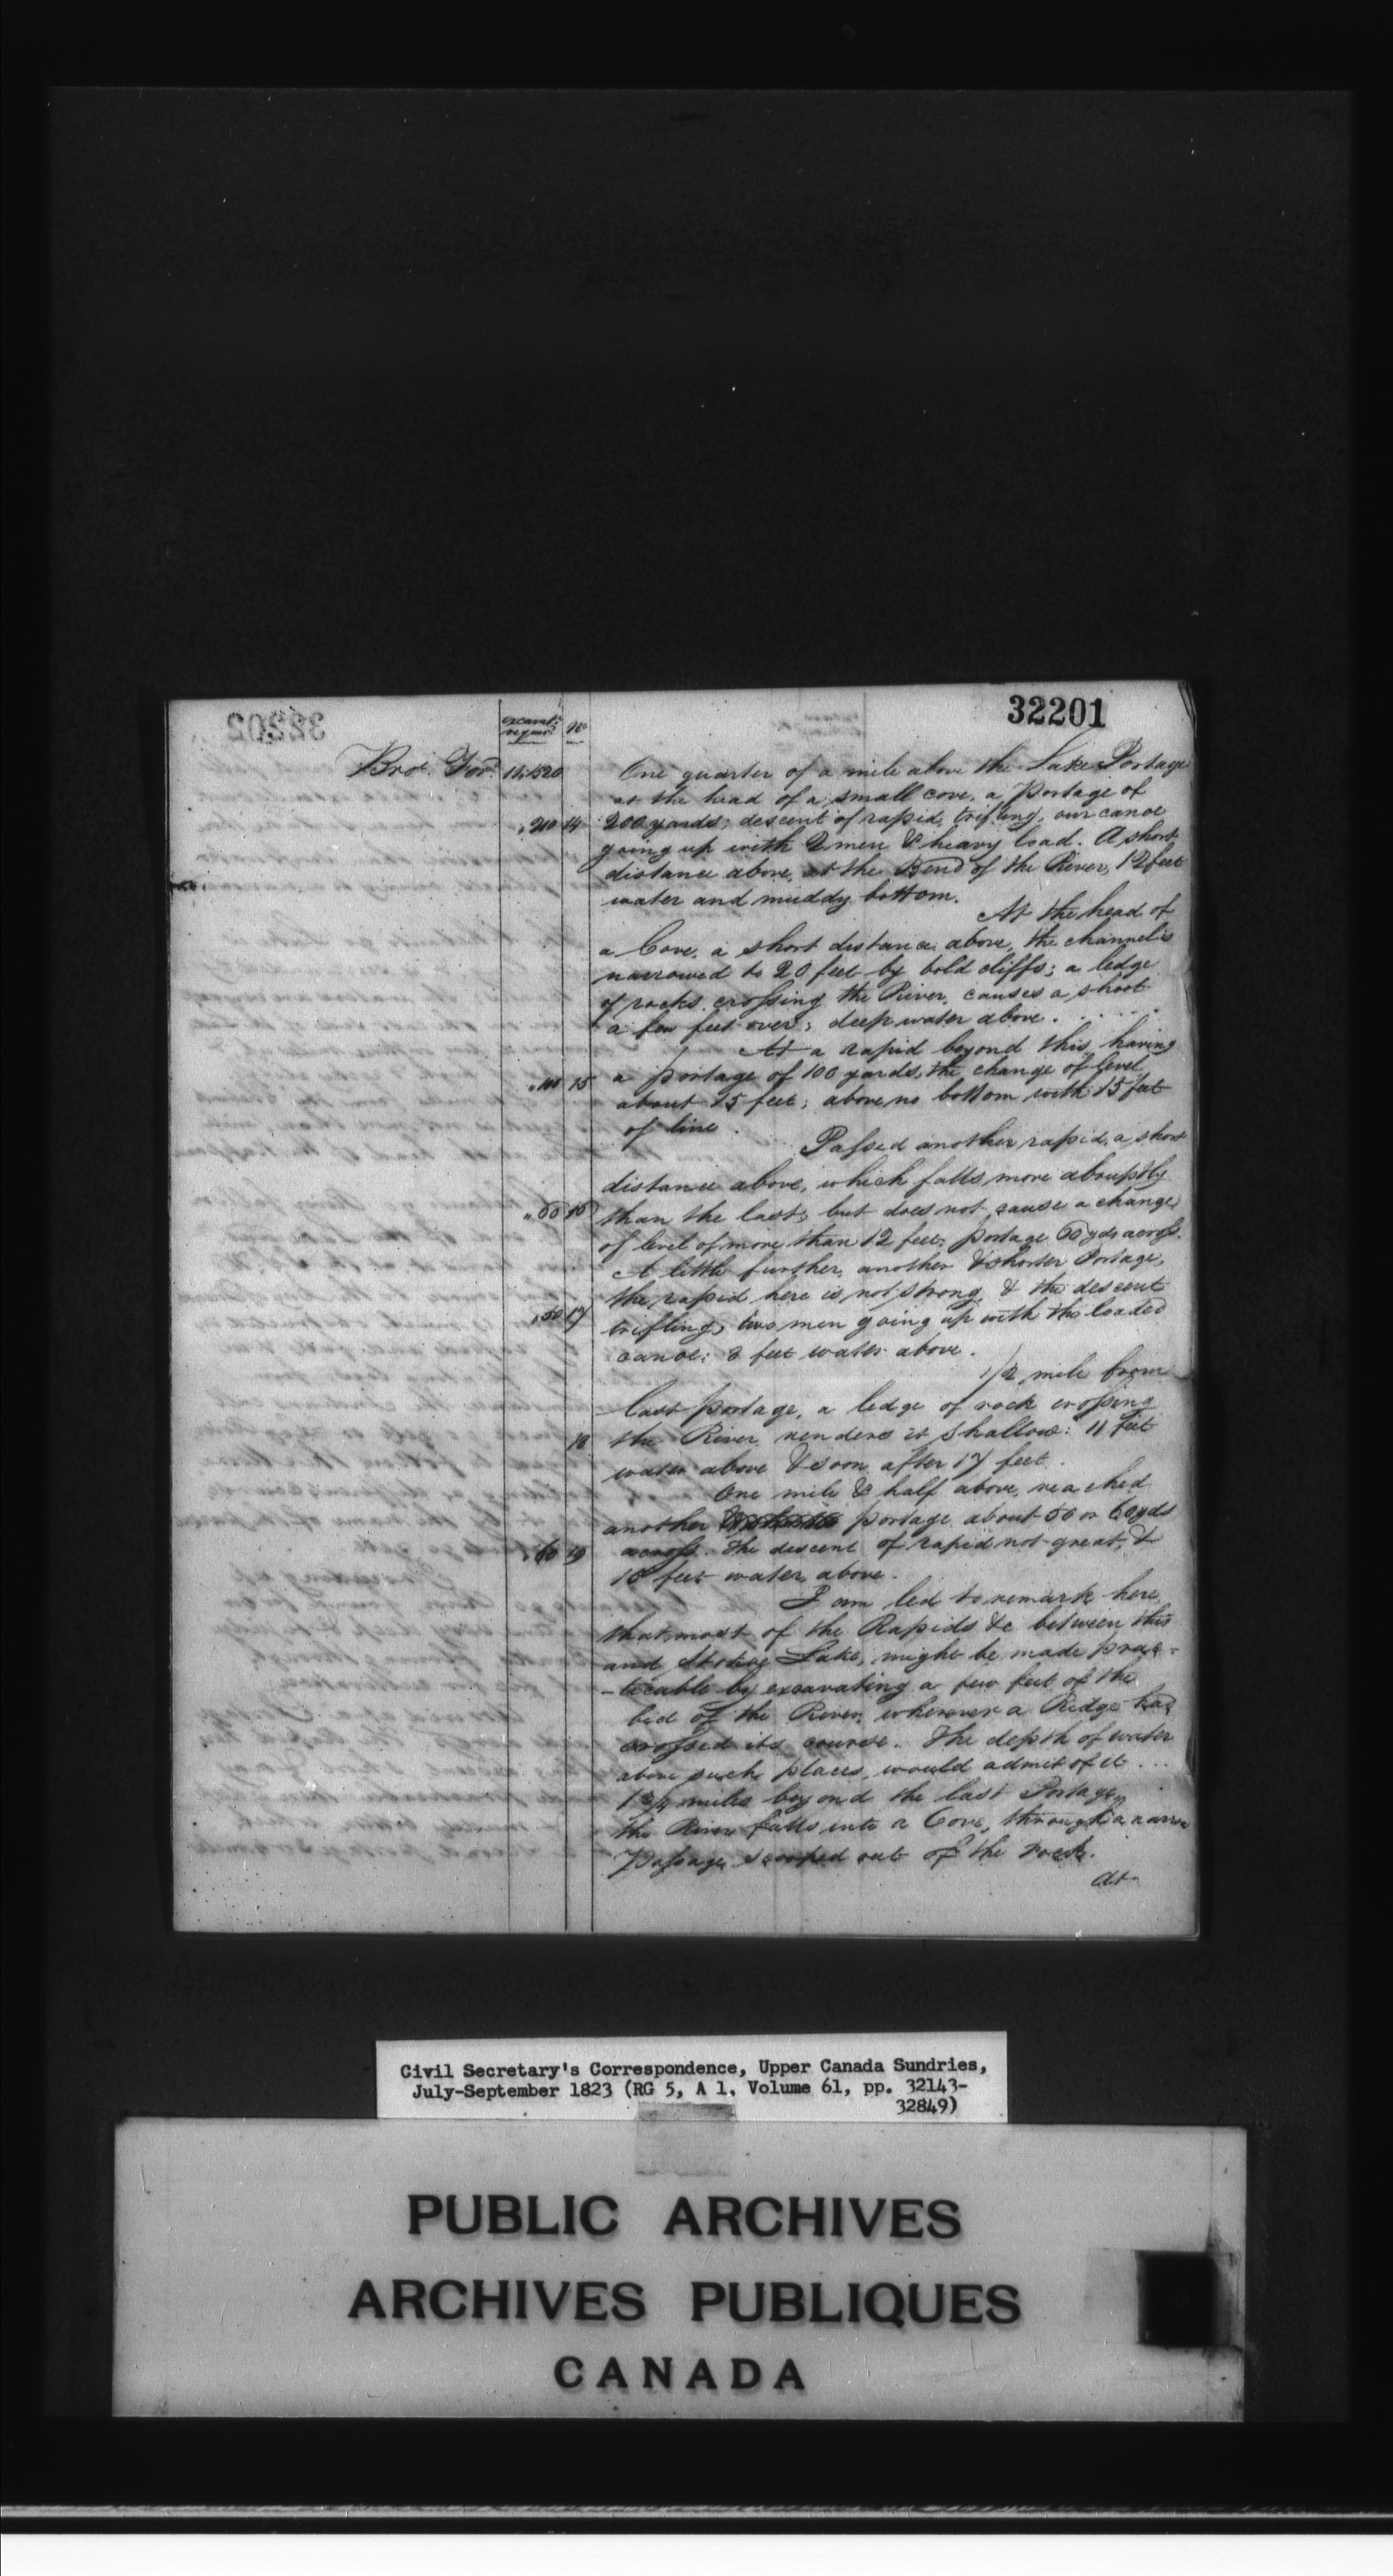 32201
excavat.
requir'd No
Brot. For'd. 11.520 One quarter of a mile above the Lake Portage
at the head of a small cove, a portage of
" 200 14 200 yards; descent of rapid, trifling, our canoe
going up with 2 men & heavy load. A short
distance above, at the Bend of the River, 12 feet
water and muddy bottom.
At the head of
a Cove, a short distance above, the channel is
narrowed to 20 feet by bold cliffs; a ledge
of rocks crossing the River, causes a shoot
a few feet over; deep water above. . . . . .
At a rapid beyond this, having
" 100 15 a portage of 100 yards, the change of level
about 15 feet; above no bottom with 15 feet
of line.
Passed another rapid, a short
distance above, which falls more abruptly
" 60 16 than the last, but does not cause a change
of level of more than 12 feet; portage 60 yds across.
A little further, another & shorter Portage,
the rapid here is not strong, & the descent
" 50 17 trifling, two men going up with the loaded
canoe: 8 feet water above.
1/2 mile from
last portage, a ledge of rock crossing
18 the River renders it shallow: 11 feet
water above & soon after 17 feet.
One mile & half above, reached
another portage about 50 or 60 yds
" 60 19 across. The descent of rapid not great, &
18 feet water above.
I am led to remark here
that most of the Rapids &c between this
and Stoney Lake, might be made prac-
-ticable by excavating a few feet of the
bed of the River, wherever a Ridge has
crossed its course. The depth of water
above such places, would admit of it ...
1 3/4 miles beyond the last Portage,
the River falls into a Cove, through a narrow
passage scooped out of the rock.
At
Civil Secretary's Correspondence, Upper Canada Sundries,
July-September 1823 (RG 5, A 1, Volume 61, pp. 32143-
32849)
PUBLIC ARCHIVES
ARCHIVES PUBLIQUES
CANADA